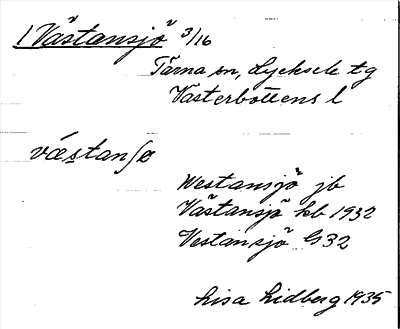 1 Västansjö 3/16
Tärna sn, Lycksele tg
Västerbottens l
væstanʃø
Westansjö jb
Västansjö kb 1932
Vestansjö G32
Lisa Lidberg 1935